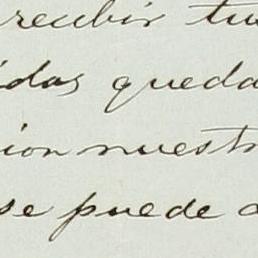 recibir tu
idas queda
ion nuestr
se puede a